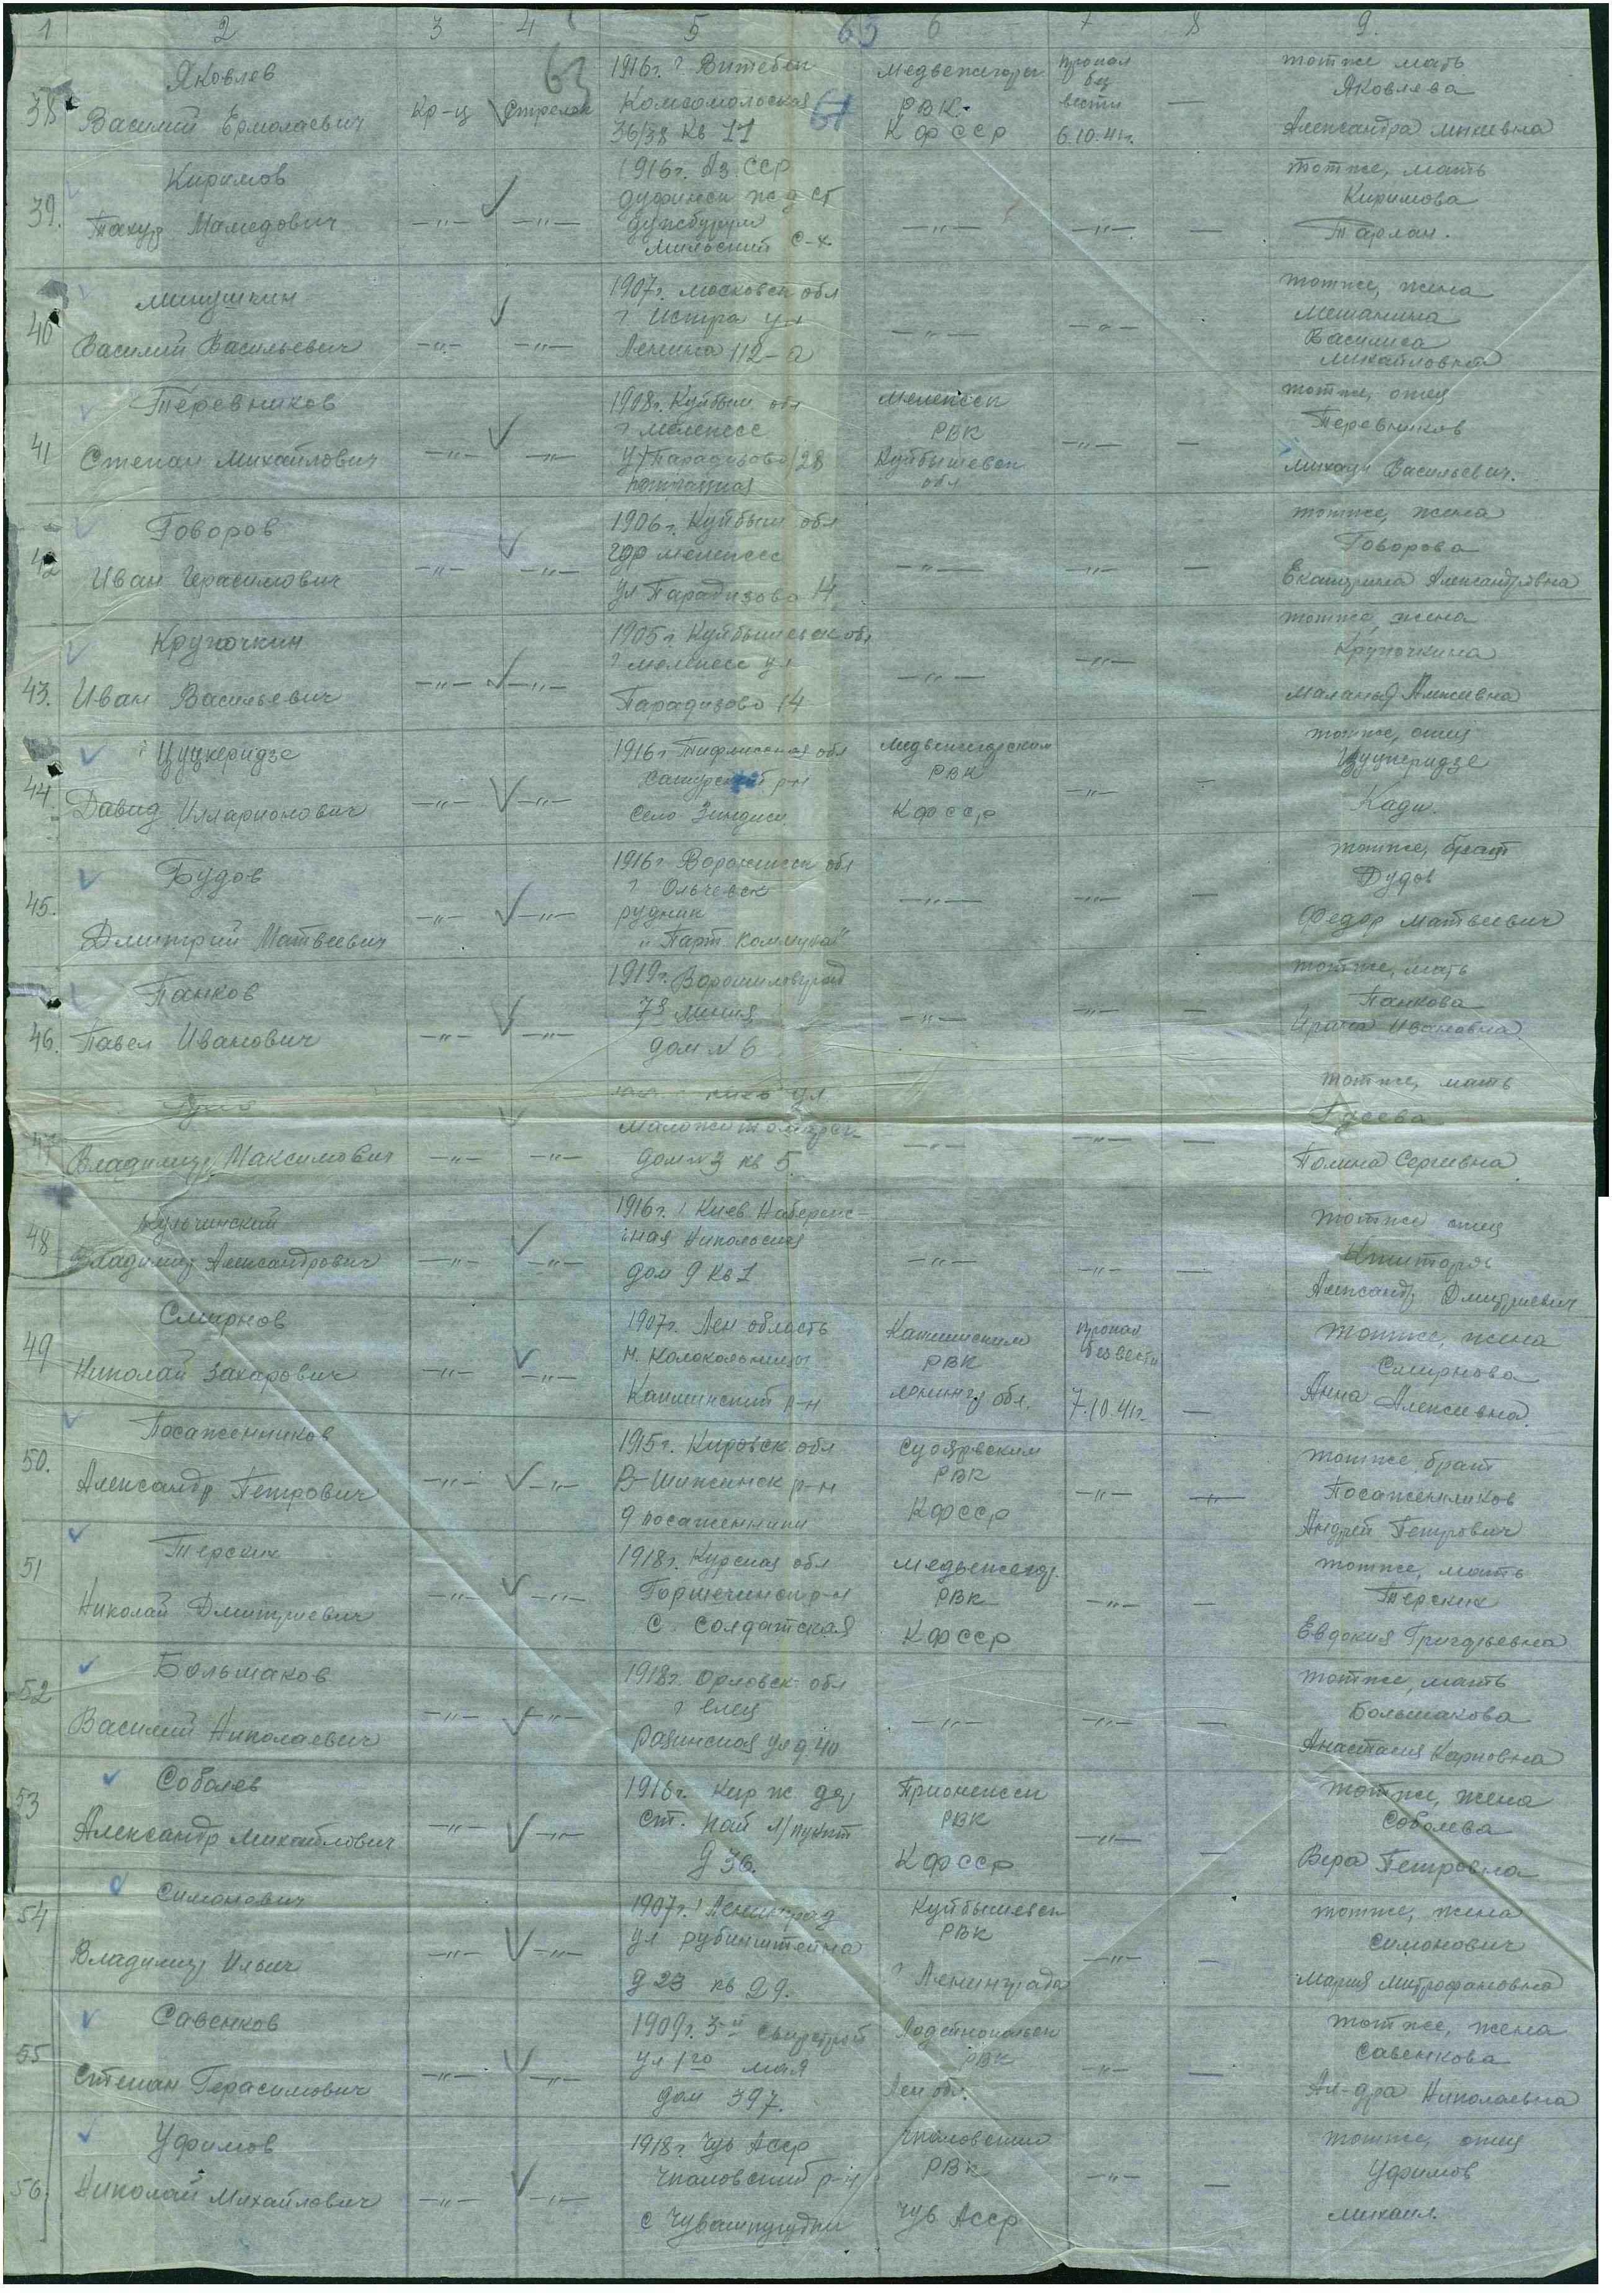 1 2 3 4 5 6 7 8 9.
63 63 61
38 Яковлев Василий Ермолаевич
Кр-ц Стрелок
1916г. г Витебск
Комсомольская
36/38 Кв 11
Медвежегорск
РВК
КФССР
пропал
без
вести
6.10.41г.
—
тот же мать
Яковлева
Александра
39. Киримов
Мамедович
—"— —"—
1916г. Аз. ССР
ж д ст
Мильский с-х.
—"— —"— —
тот же, мать
Киримова
Тарлан.
40
Василий Васильевич
—"— —"—
1907г. Московск обл
г Истра ул
Ленина 112-а
—"— —"—
тот же, жена
Василиса
Михайловна
41 Теревников
Степан Михайлович
—"— —"—
1908г. Куйбыш обл
г Мелекесс
ул Парадизово 28
Мелекесск
РВК
Куйбышевск
обл
—"— —
тот же, отец
Теревников
Михаил Васильевич.
42 Говоров
Иван Герасимович
—"— —"—
1906г. Куйбыш обл
гор Мелекесс
ул Парадизово 14
—"— —"— —
тот же, жена
Говорова
Екатерина Александровна
43. Крупочкин
Иван Васильевич
—"— —"—
1905г. Куйбышевск обл
г Мелекесс ул
Парадизово 14
—"— —"—
тот же, жена
Крупочкина
Маланья Алексеевна
44. Цуцкеридзе
Давид Илларионович
—"— —"—
1916г Тифлисская обл
р-н
Село
Медвежегорским
РВК
КФССР
—"— —
тот же, отец
Цуцкеридзе
Кади.
45. Будов
Дмитрий Матвеевич
—"— —"—
1916г. обл
г
рудник
"Парт коммуна"
—"— —"— —
тот же, брат
Дудов
Федор Матвеевич
46. Панков
Павел Иванович
—"— —"—
1919г. Ворошиловград
7я линия
дом №6
—"— —"— —
тот же, мать
Панкова
Ирина Ивановна
47 Владимир Максимович
—"— —"—
ул
дом №3 кв 5.
—"— —"— —
тот же, мать
Гусева
Полина Сергеевна
48
Владимир Александрович
—"— —"—
1916г. г Киев Набереж-
ная Никольская
дом 9 кв 1
—"— —"— —
тот же отец
Александр Дмитриевич
49 Смирнов
Николай Захарович
—"— —"—
1907г. Лен область
Капшинский р-н
Капшинским
РВК
Ленингр обл.
пропал
без вести
7.10.41г.
—
тот же, жена
Смирнова
Анна Алексеевна.
50. Посаженников
Александр Петрович
—"— —"—
1915г. Кировск обл
В-Шижемск р-н
д Посаженники
Суоярвским
РВК
КФССР
—"— —"—
тот же, брат
Посаженников
Андрей Петрович
51 Терских
Николай Дмитриевич
—"— —"—
1918г. Курская обл
р-н
с Солдатская
Медвежегор.
РВК
КФССР
—"— —
тот же, мать
Терских
Евдокия Григорьевна
52 Большаков
Василий Николаевич
—"— —"—
1918г. Орловск обл
г Елец
ул д 40
—"— —"— —
тот же, мать
Большакова
Анастасия Карповна
53 Соболев
Александр Михайлович
—"— —"—
1916г. Кир ж дор
ст. Кай л/пункт
д 36.
Прионежск
РВК
КФССР
—"— —
тот же, жена
Соболева
Вера Петровна
54 Симонович
Владимир Ильич
—"— —"—
1907г. г Ленинград
ул Рубинштейна
д 23 кв 29.
Куйбышевск
РВК
г Ленинграда
—"— —
тот же, жена
Симонович
Мария Митрофановна
55 Савенков
Степан Герасимович
—"— —"—
1909г. Свирстрой
ул 1го мая
дом 397.
Лодейнопольск
РВК
Лен обл.
—"— —
тот же, жена
Савенкова
Ал-дра Николаевна
56. Уфимов
Николай Михайлович
—"— —"—
1918г. Чув АССР
Чкаловский р-н
с
Чкаловским
РВК
Чув АССР
—"— —
тот же, отец
Уфимов
Михаил.